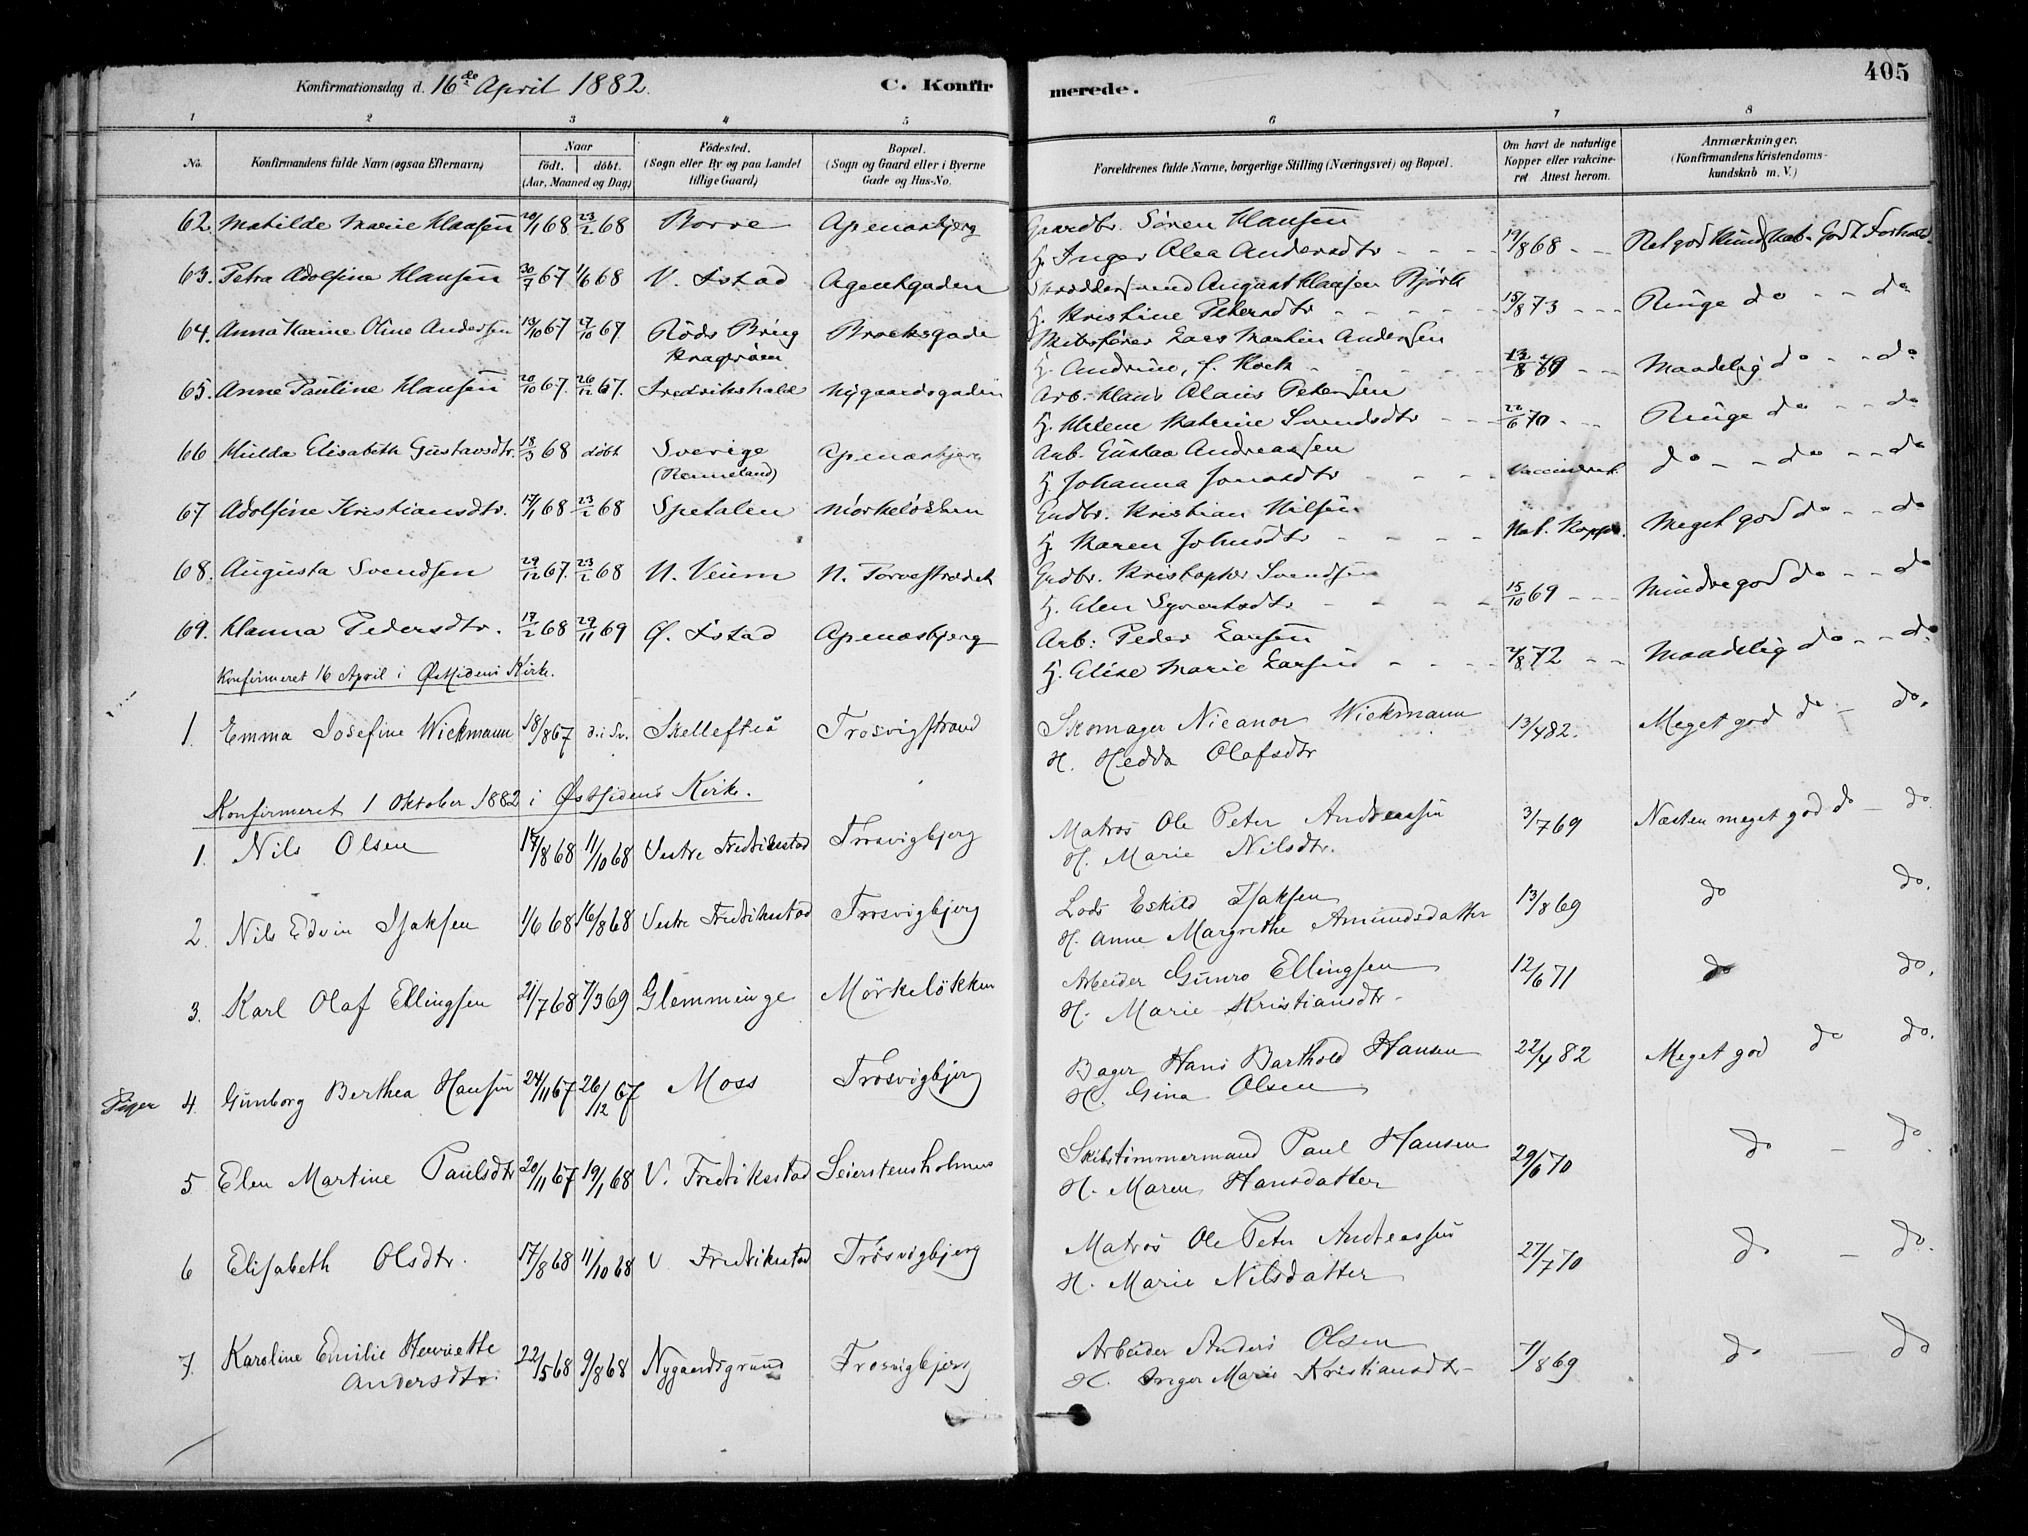 405
Konfirmationsdag d. 16de April 1882. C. Konfirmerede.
1 2 3 4 5 6 7 8
No. Konfirmandens fulde Navn (ogsaa Efternavn) Naar født. døbt. (Aar, Maaned og Dag) Fødested. (Sogn eller By og paa Landet tillige Gaard) Bopæl. (Sogn og Gaard eller i Byerne Gade og Hus-No. Forældrenes fulde Navne, borgerlige Stilling (Næringsvei) og Bopæl. Om havt de naturlige Kopper eller vaccineret Attest herom. Anmærkninger. (Konfirmandens Kristendomskundskab m. V.)
62. Matilde Marie Klausen 20/1 68 23/2 68 Borre Apenæsbjerg Gaardbr. Sören Klausen
H. Inger Alea Andersdtr - - - 19/8 68 - - Ret god Kundskab - Godt Forhold
63. Petra Adolfine Klausen 30/7 67 1/6 68 V. Fstad Agentgaden August Klausen Björk
H. Kristine Petersdtr - - - 15/8 73 - - - Ringe do - - do
64. Anna Karine Oline Andersen 13/10 67 27/10 67 Röds Brug Kragerøen Brochsgade Skibsfører Lars Martin Andersen
H. Andrine, f. Koch - - - 69 - - Maadelig do - - do
65. Anne Pauline Klausen 20/10 67. 26/12 67. Fredrikshald Nygaardsgaden Arb. Klaus Olaus Petersen
H. Helene Katrine Svendsdtr - - 22/6 70 - - Ringe do - - do
66 Hulda Elisabeth Gustavsdtr. 18/3 68 døbt Sverige Apenæsbjerg Arb. Gustav Andreassen
H. Johanna Jonasdtr - - - vaccineret. do - - do - - do
67 Adolfine Kristiansdtr. 17/1 68 23/2 68 Spetalen Mörkelökken Gudbr. Kristian Nilsen
H. Karen Johnsdtr - - - - Nat. Kopper. Meget god do - - do
68. Augusta Svendsen 29/12 67. 23/2 68 N. Veum N. Torvestrædet Gudbr. Kristopher Svendsen
H. Alen Syvertsdtr - - - 15/10 69 - - - Mindre god do - - do
69. Hanna Pedersdtr. 17/2 68 29/11 69 Ø. Fstad Apenæsbjerg Arb: Peder Larsen
H. Elise Marie Larsen - - - 72 - - Maadelig do - - do
Konfirmeret 16 April i Østsidens Kirke.
1. Emma Josefine Wickmann 18/8 67 d. i Sv. Skellefteå Trosvigstrand Skomager Nicanor Wickmann 13/4 82. Meget god do - do.
H. Hedda Olafsdtr
Konfirmeret 1 Oktober 1882 i Østsidens Kirke.
1. Nils Olsen 17/8 68 11/10 68 Vestre Fredrikstad Trosvigbjerg Matros Ole Peter Andreassen 3/7 69 Næsten meget god do - do.
H. Marie Nilsdtr.
2. Nils Edvin Isaksen 1/6 68 16/8 68 Vestre Fredrikstad Trosvigbjerg Lods Eskild Isaksen 13/8 69 do do.
H. Anne Margrethe Amundsdatter
3. Karl Olaf Ellingsen 21/7 68 7/3 69 Glemminge Mörkelökken Arbeider Gunro Ellingsen 12/6 71 do do.
H. Marie Kristiansdtr -
Piger 4. Gunborg Berthea Hansen 24/11 67 26/12 67 Moss Trosvigbjerg Bager Hans Barthold Hansen 22/4 82 Meget god do do.
H. Gina Olsen
5 Elen Martine Paulsdtr 20/11 67 19/1 68 V. Fredrikstad Seierstensholmen Skibstömmermand Paul Hansen 29/6 70 do - do
H. Maren Hansdatter
6 Elisabeth Olsdtr. 17/8 68 11/10 68 V Fredrikstad Trosvigbjerg Matros Ole Peter Andreassen 27/7 70 do - do.
H. Marie Nilsdatter
7. Karoline Emilie Henriette Andersdtr. 22/5 68 9/8 68 Nygaardsgrund Trosvigbjerg Arbeider Anders Olsen 7/8 69 do do
H. Inger Marie Kristiansdtr -